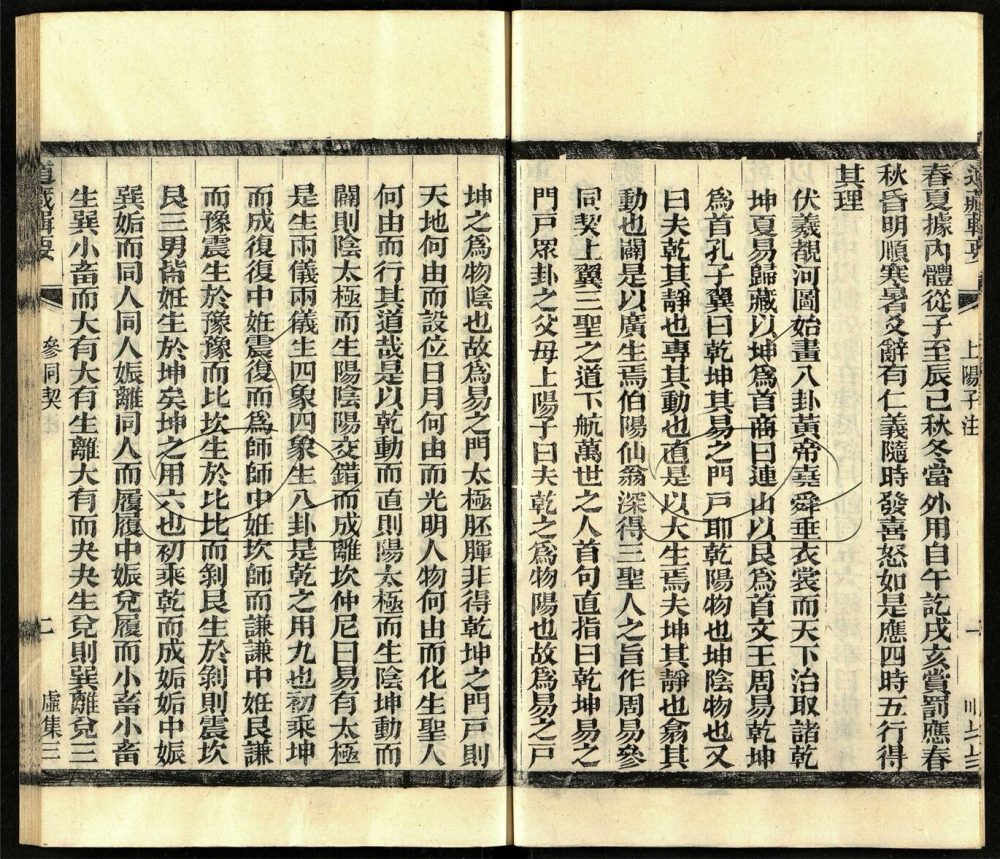 道藏輯要
上陽子注
一
春夏據內體從子至辰巳秋冬當外用自午訖戌亥賞罰應春
秋昏明順寒暑爻辭有仁義隨時發喜怒如是應四時五行得
其理
伏羲覩河圖始畫八卦黃帝堯舜垂衣裳而天下治取諸乾
坤夏易歸藏以坤爲首商曰連山以艮爲首文王周易乾坤
爲首孔子翼曰乾坤其易之門戶耶乾陽物也坤陰物也又
曰夫乾其靜也專其動也直是以大生焉夫坤其靜也翕其
動也闢是以廣生焉伯陽仙翁深得三聖人之旨作周易參
同契上翼三聖之道下航萬世之人首句直指曰乾坤易之
門戶眾卦之父母上陽子曰夫乾之爲物陽也故爲易之戶
坤之爲物陰也故爲易之門太極胚腪非得乾坤之門戶則
天地何由而設位日月何由而光明人物何由而化生聖人
何由而行其道哉是以乾動而直則陽太極而生陰坤動而
闢則陰太極而生陽陰陽交錯而成離坎仲尼曰易有太極
是生兩儀兩儀生四象四象生八卦是乾之用九也初乘坤
而成復復中姙震復而爲師師中姙坎師而謙謙中姙艮謙
而豫震生於豫豫而比坎生於比比而剝艮生於剝則震坎
艮三男皆姙生於坤矣坤之用六也初乘乾而成姤姤中娠
巽姤而同人同人娠離同人而履履中娠兌履而小畜小畜
生巽小畜而大有大有生離大有而夬夬生兌則巽離兌三
道藏輯要
參同契
二
虛集三